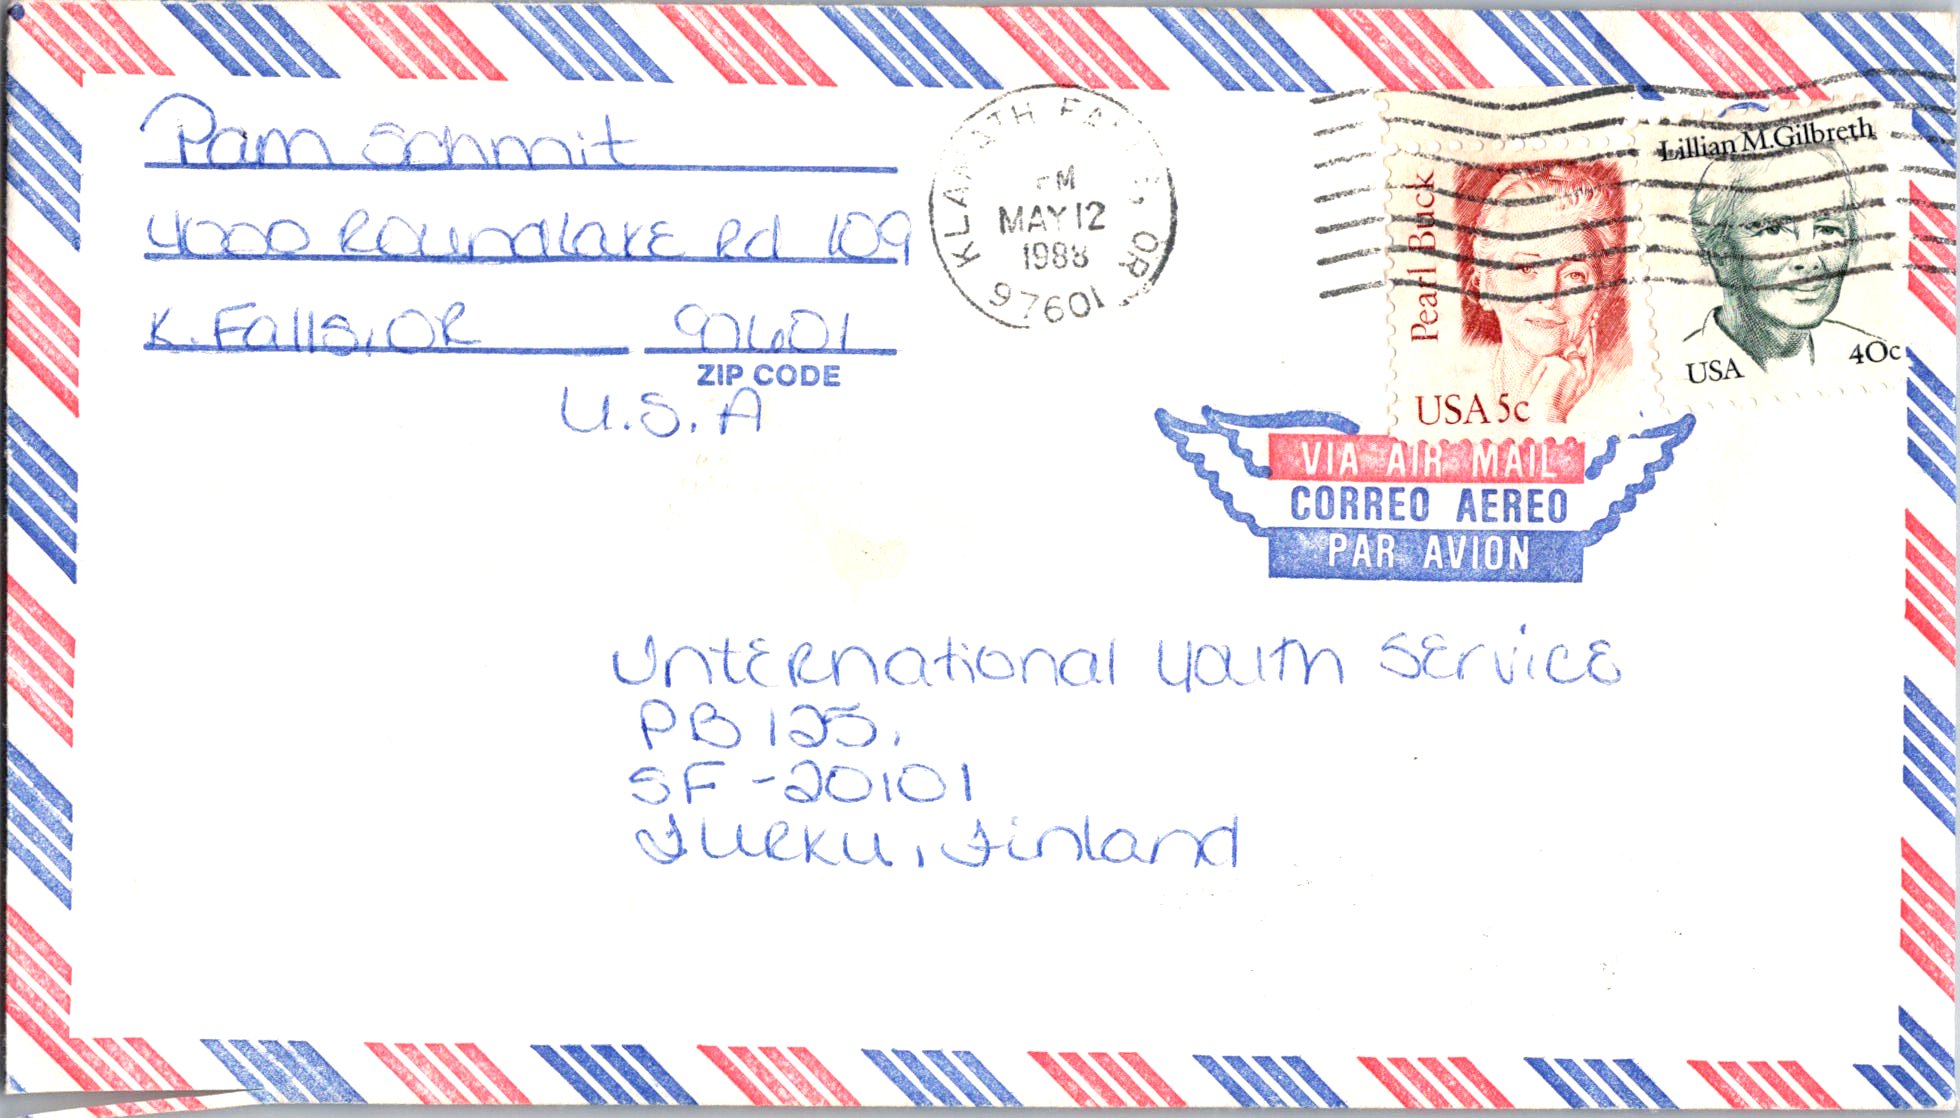 Pam Schmit
4000 Roundlake Rd 109
K. Falls, OR 97601
ZIP CODE
U.S.A
KLAMATH FALLS, OR
PM
MAY 12
1988
97601
Pearl Buck
USA 5c
Lillian M. Gilbreth
USA 40c
VIA AIR MAIL
CORREO AEREO
PAR AVION
International Youth Service
PB 125,
SF-20101
Turku, Finland